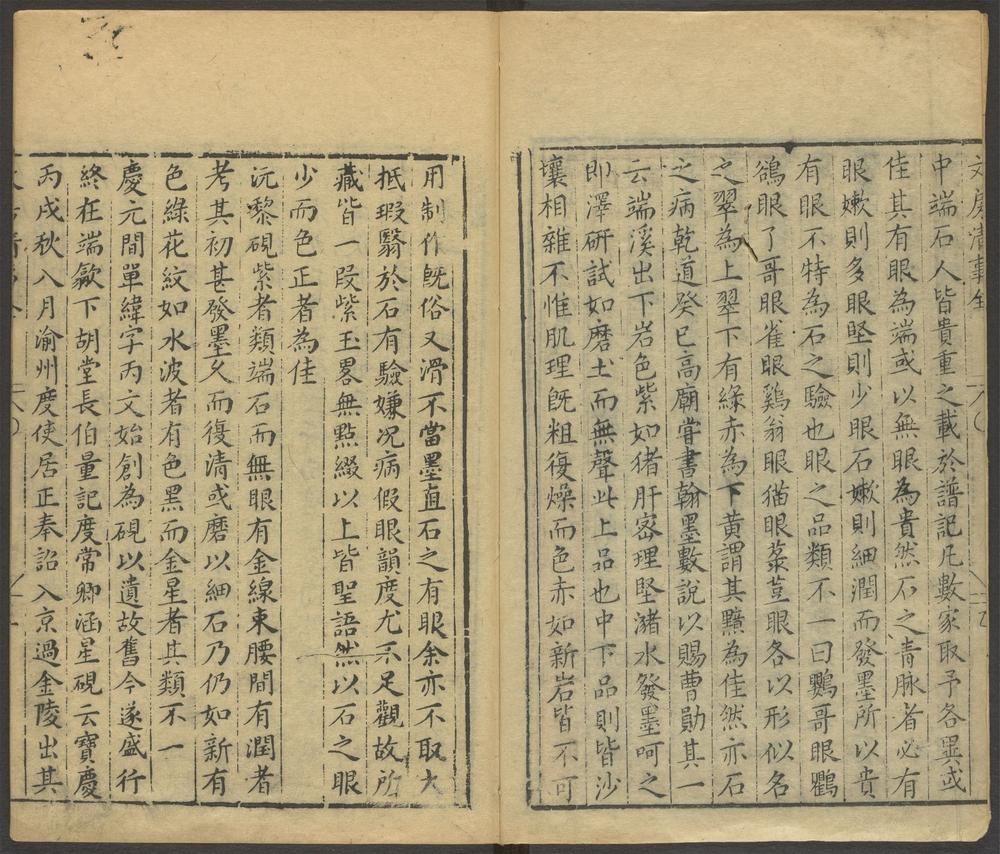 文房清事全
中端石人皆貴重之載於譜記凡數家取予各異或
佳其有眼為端或以無眼為貴然石之青脉者必有
眼嫰則多眼堅則少眼石嫰則細潤而發墨所以貴
有眼不特為石之驗也眼之品類不一曰鸚哥眼鸜
鵒眼了哥眼雀眼鷄翁眼猫眼菉荳眼各以形似名
之翠為上翠下有綠赤為下黄謂其黯為佳然亦石
之病乾道癸巳高廟嘗書翰墨數說以賜曹勛其一
云端溪出下岩色紫如猪肝宻理堅潴水發墨呵之
即澤研試如磨𡈽而無聲此上品也中下品則皆沙
壤相雜不惟肌理旣粗復燥而色赤如新岩皆不可
用制作旣俗又滑不當墨直石之有眼余亦不取大
抵瑕翳於石有驗嫌况病假眼韻度尤不足觀故所
藏皆一叚紫玉畧無點綴以上皆聖語然以石之眼
少而色正者為佳
沅黎硯紫者類端石而無眼有金線束腰間有潤者
考其初甚發墨久而復清或磨以細石乃仍如新有
色綠花紋如水波者有色黑而金星者其類不一
慶元間單緯字丙文始創為硯以遺故舊今遂盛行
終在端歙下胡堂長伯量記度常卿涵星硯云寶慶
丙戌秋八月渝州度使居正奉詔入京過金陵出其